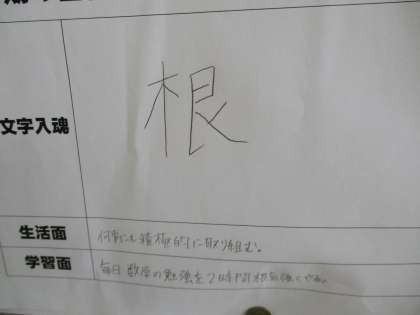 文字入魂
根
生活面
何事にも積極的に取り組む。
学習面
毎日数学の勉強を2時間根気強くやる。